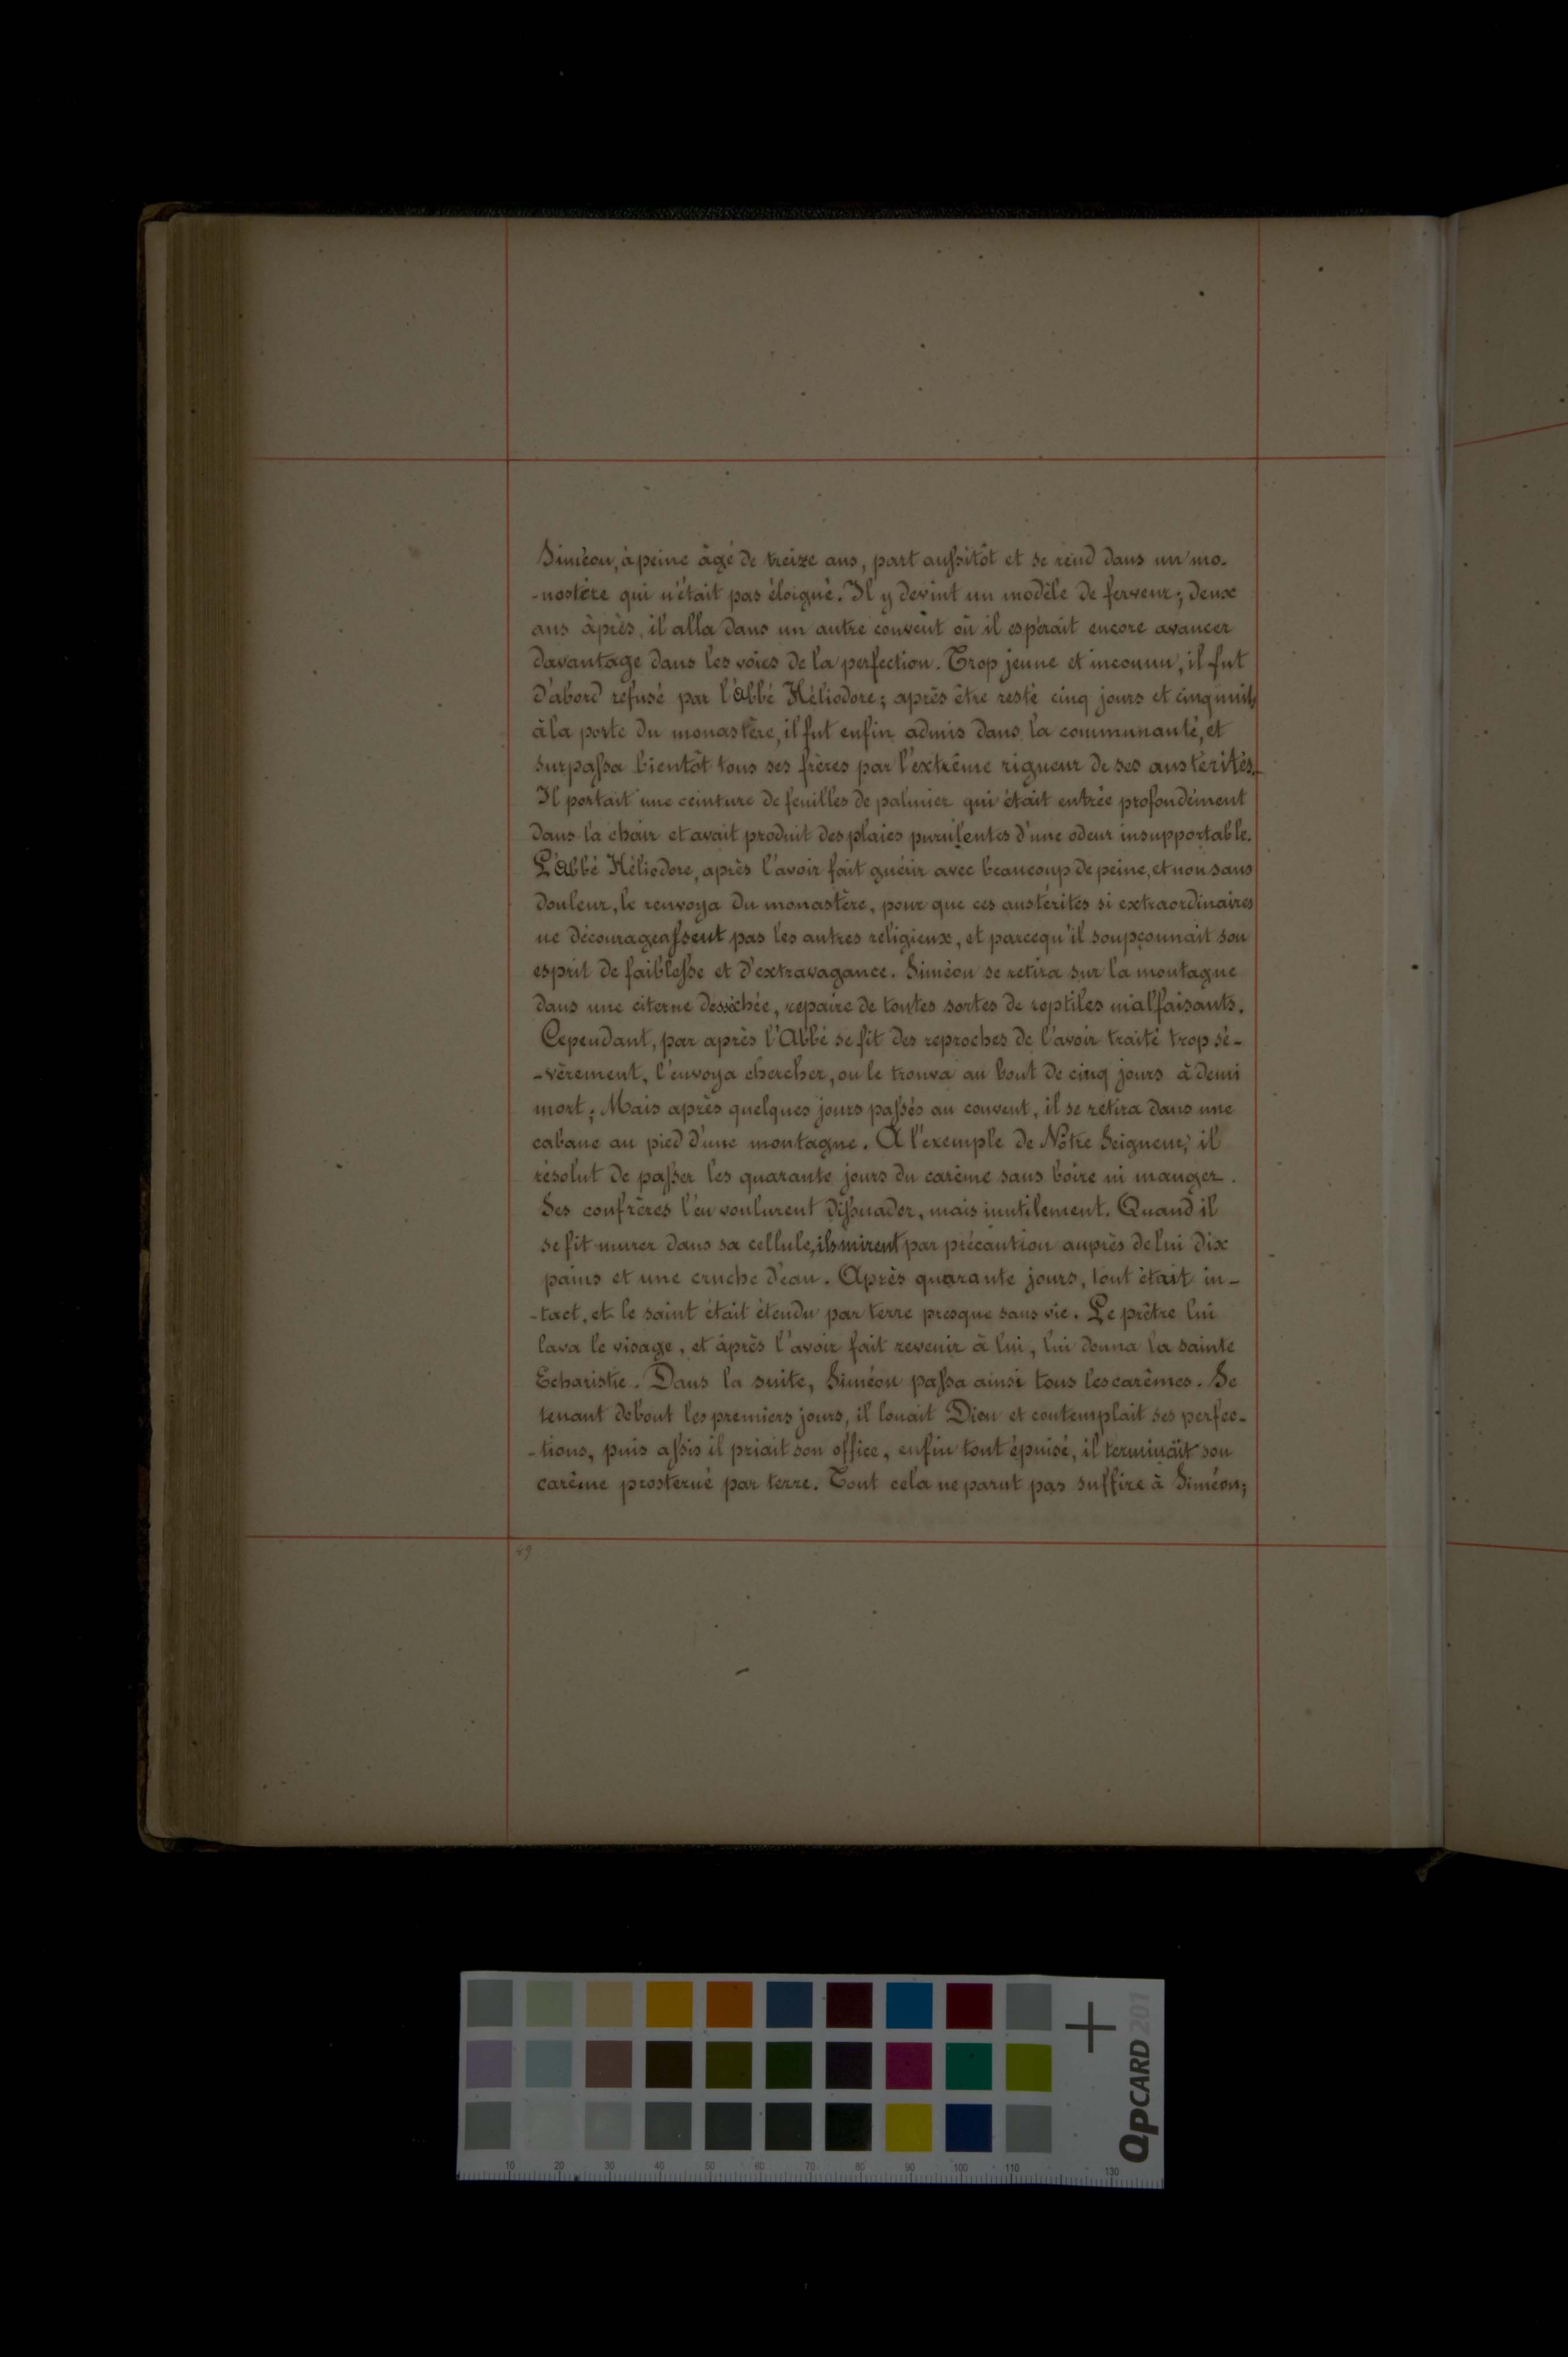 Siméon, à peine âgé de treize ans, part aussitôt et se rend dans un mo-
-nostère qui n'était pas éloigné. Il y devint un modèle de ferveur; deux
ans après, il alla dans un autre couvent où il espérait encore avancer
davantage dans les voies de la perfection. Trop jeune et inconnu, il fut
d'abord refusé par l'abbé Héliodore; après être resté cinq jours et cinq nuits
à la porte du monastère, il fut enfin admis dans la communauté, et
surpassa bientôt tous ses frères par l'extrême rigueur de ses austérités.
Il portait une ceinture de feuilles de palmier qui était entrée profondément
dans la chair et avait produit des plaies purulentes d'une odeur insupportable.
L'abbé Héliodore, après l'avoir fait guérir avec beaucoup de peine, et non sans
douleur, le renvoya du monastère, pour que ces austérités si extraordinaires
ne décourageassent pas les autres religieux, et parcequ'il soupçonnait son
esprit de faiblesse et d'extravagance. Siméon se retira sur la montagne
dans une citerne desséchée, repaire de toutes sortes de reptiles malfaisants.
Cependant, par après l'Abbé se fit des reproches de l'avoir traité trop sé-
-vèrement, l'envoya chercher, on le trouva au bout de cinq jours à demi
mort; Mais après quelques jours passés au couvent, il se retira dans une
cabane au pied d'une montagne. A l'exemple de Nôtre Seigneur, il
résolut de passer les quarante jours du carême sans boire ni manger.
Ses confrères l'en voulurent dissuader, mais inutilement. Quand il
se fit murer dans sa cellule, ils mirent par précaution auprès de lui dix
pains et une cruche d'eau. Après quarante jours, tout était in-
-tact, et le saint était étendu par terre presque sans vie. Le prêtre lui
lava le visage, et après l'avoir fait revenir à lui, lui donna la sainte
Echaristie. Dans la suite, Siméon passa ainsi tous les carêmes. Se
tenant debout les premiers jours, il louait Dieu et contemplait ses perfec-
-tions, puis assis il priait son office, enfin tout épuisé, il terminait son
carême prosterné par terre. Tout cela ne parut pas suffire à Siméon;
49
QPCARD 201
10 20 30 40 50 60 70 80 90 100 110 130